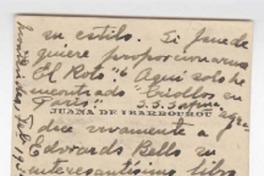 su estilo. Si puede
quiere proporcionarme
"El Roto"? Aquí solo he
encontrado "Criollos en
París".
JUANA DE IBARBOUROU
agra-
dece vivamente a
Edwards Bello su
interesantísimo libro
Montevideo, Feb